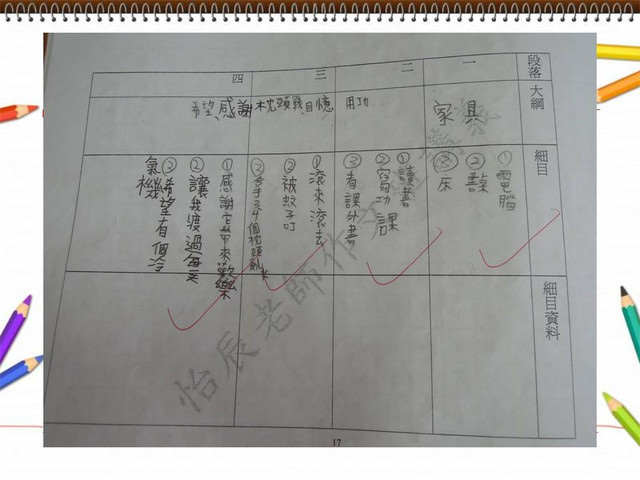 段落
大綱
細目
細目資料
一
家具
①電腦
②書桌
③床
二
用功
①讀書
②寫功課
③看課外書
三
枕頭
回憶
①滾來滾去
②被蚊子叮
四
希望、感謝
①感謝它帶來歡樂
②讓我渡過每天
③希望有個冷
氣機
怡辰老師作文
17